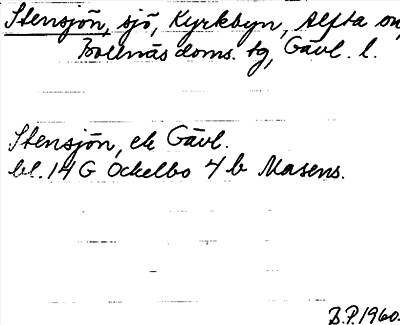 Stensjön, sjö, Kyrkbyn, Alfta sn,
Bollnäs doms. tg, Gävl. l.
Stensjön, ek Gävl.
bl. 14 G Ockelbo 4 b Masens.
B.P. 1960.